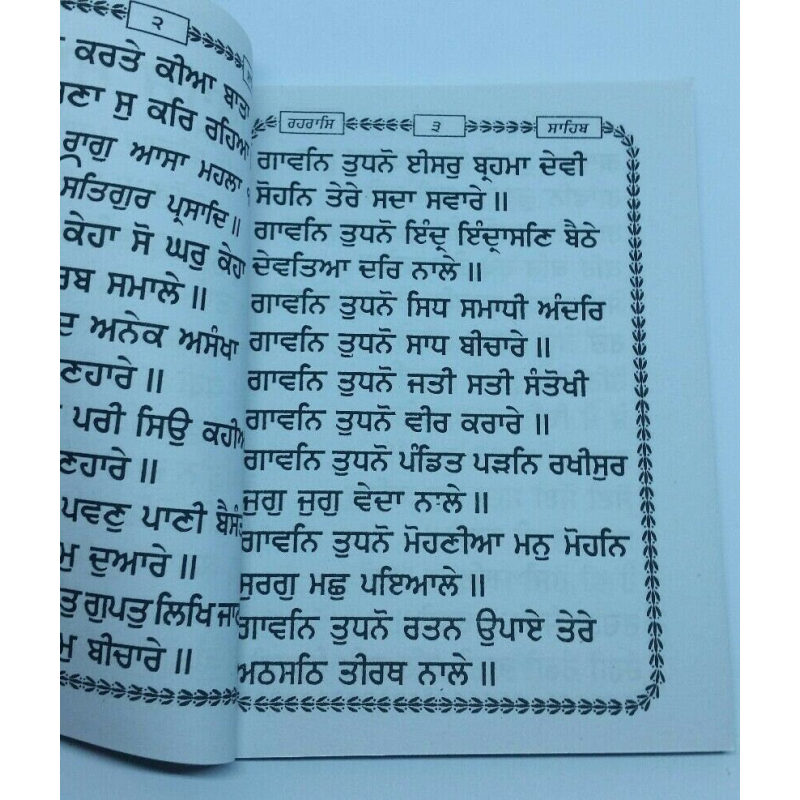 ੨
ਕਰਤੇ ਕੀਆ ਬਾਤਾ
ਸੁ ਕਰਿ ਰਹਿਆ
ਰਾਗੁ ਆਸਾ ਮਹਲਾ
ਸਤਿਗੁਰ ਪ੍ਰਸਾਦਿ॥
ਕੇਹਾ ਸੋ ਘਰੁ ਕੇਹਾ
ਸਮਾਲੇ॥
ਅਨੇਕ ਅਸੰਖਾ
ਪਰੀ ਸਿਉ
ਪਵਣੁ ਪਾਣੀ
ਦੁਆਰੇ॥
ਗੁਪਤੁ ਲਿਖਿ
ਬੀਚਾਰੇ॥
ਰਹਰਾਸਿ ੩ ਸਾਹਿਬ
ਗਾਵਨਿ ਤੁਧਨੋ ਈਸਰੁ ਬ੍ਰਹਮਾ ਦੇਵੀ
ਸੋਹਨਿ ਤੇਰੇ ਸਦਾ ਸਵਾਰੇ॥
ਗਾਵਨਿ ਤੁਧਨੋ ਇੰਦ੍ਰ ਇੰਦ੍ਰਾਸਣਿ ਬੈਠੇ
ਦੇਵਤਿਆ ਦਰਿ ਨਾਲੇ॥
ਗਾਵਨਿ ਤੁਧਨੋ ਸਿਧ ਸਮਾਧੀ ਅੰਦਰਿ
ਗਾਵਨਿ ਤੁਧਨੋ ਸਾਧ ਬੀਚਾਰੇ॥
ਗਾਵਨਿ ਤੁਧਨੋ ਜਤੀ ਸਤੀ ਸੰਤੋਖੀ
ਗਾਵਨਿ ਤੁਧਨੋ ਵੀਰ ਕਰਾਰੇ॥
ਗਾਵਨਿ ਤੁਧਨੋ ਪੰਡਿਤ ਪੜਨਿ ਰਖੀਸੁਰ
ਜੁਗੁ ਜੁਗੁ ਵੇਦਾ ਨਾਲੇ॥
ਗਾਵਨਿ ਤੁਧਨੋ ਮੋਹਣੀਆ ਮਨੁ ਮੋਹਨਿ
ਸੁਰਗੁ ਮਛੁ ਪਇਆਲੇ॥
ਗਾਵਨਿ ਤੁਧਨੋ ਰਤਨ ਉਪਾਏ ਤੇਰੇ
ਅਠਸਠਿ ਤੀਰਥ ਨਾਲੇ॥